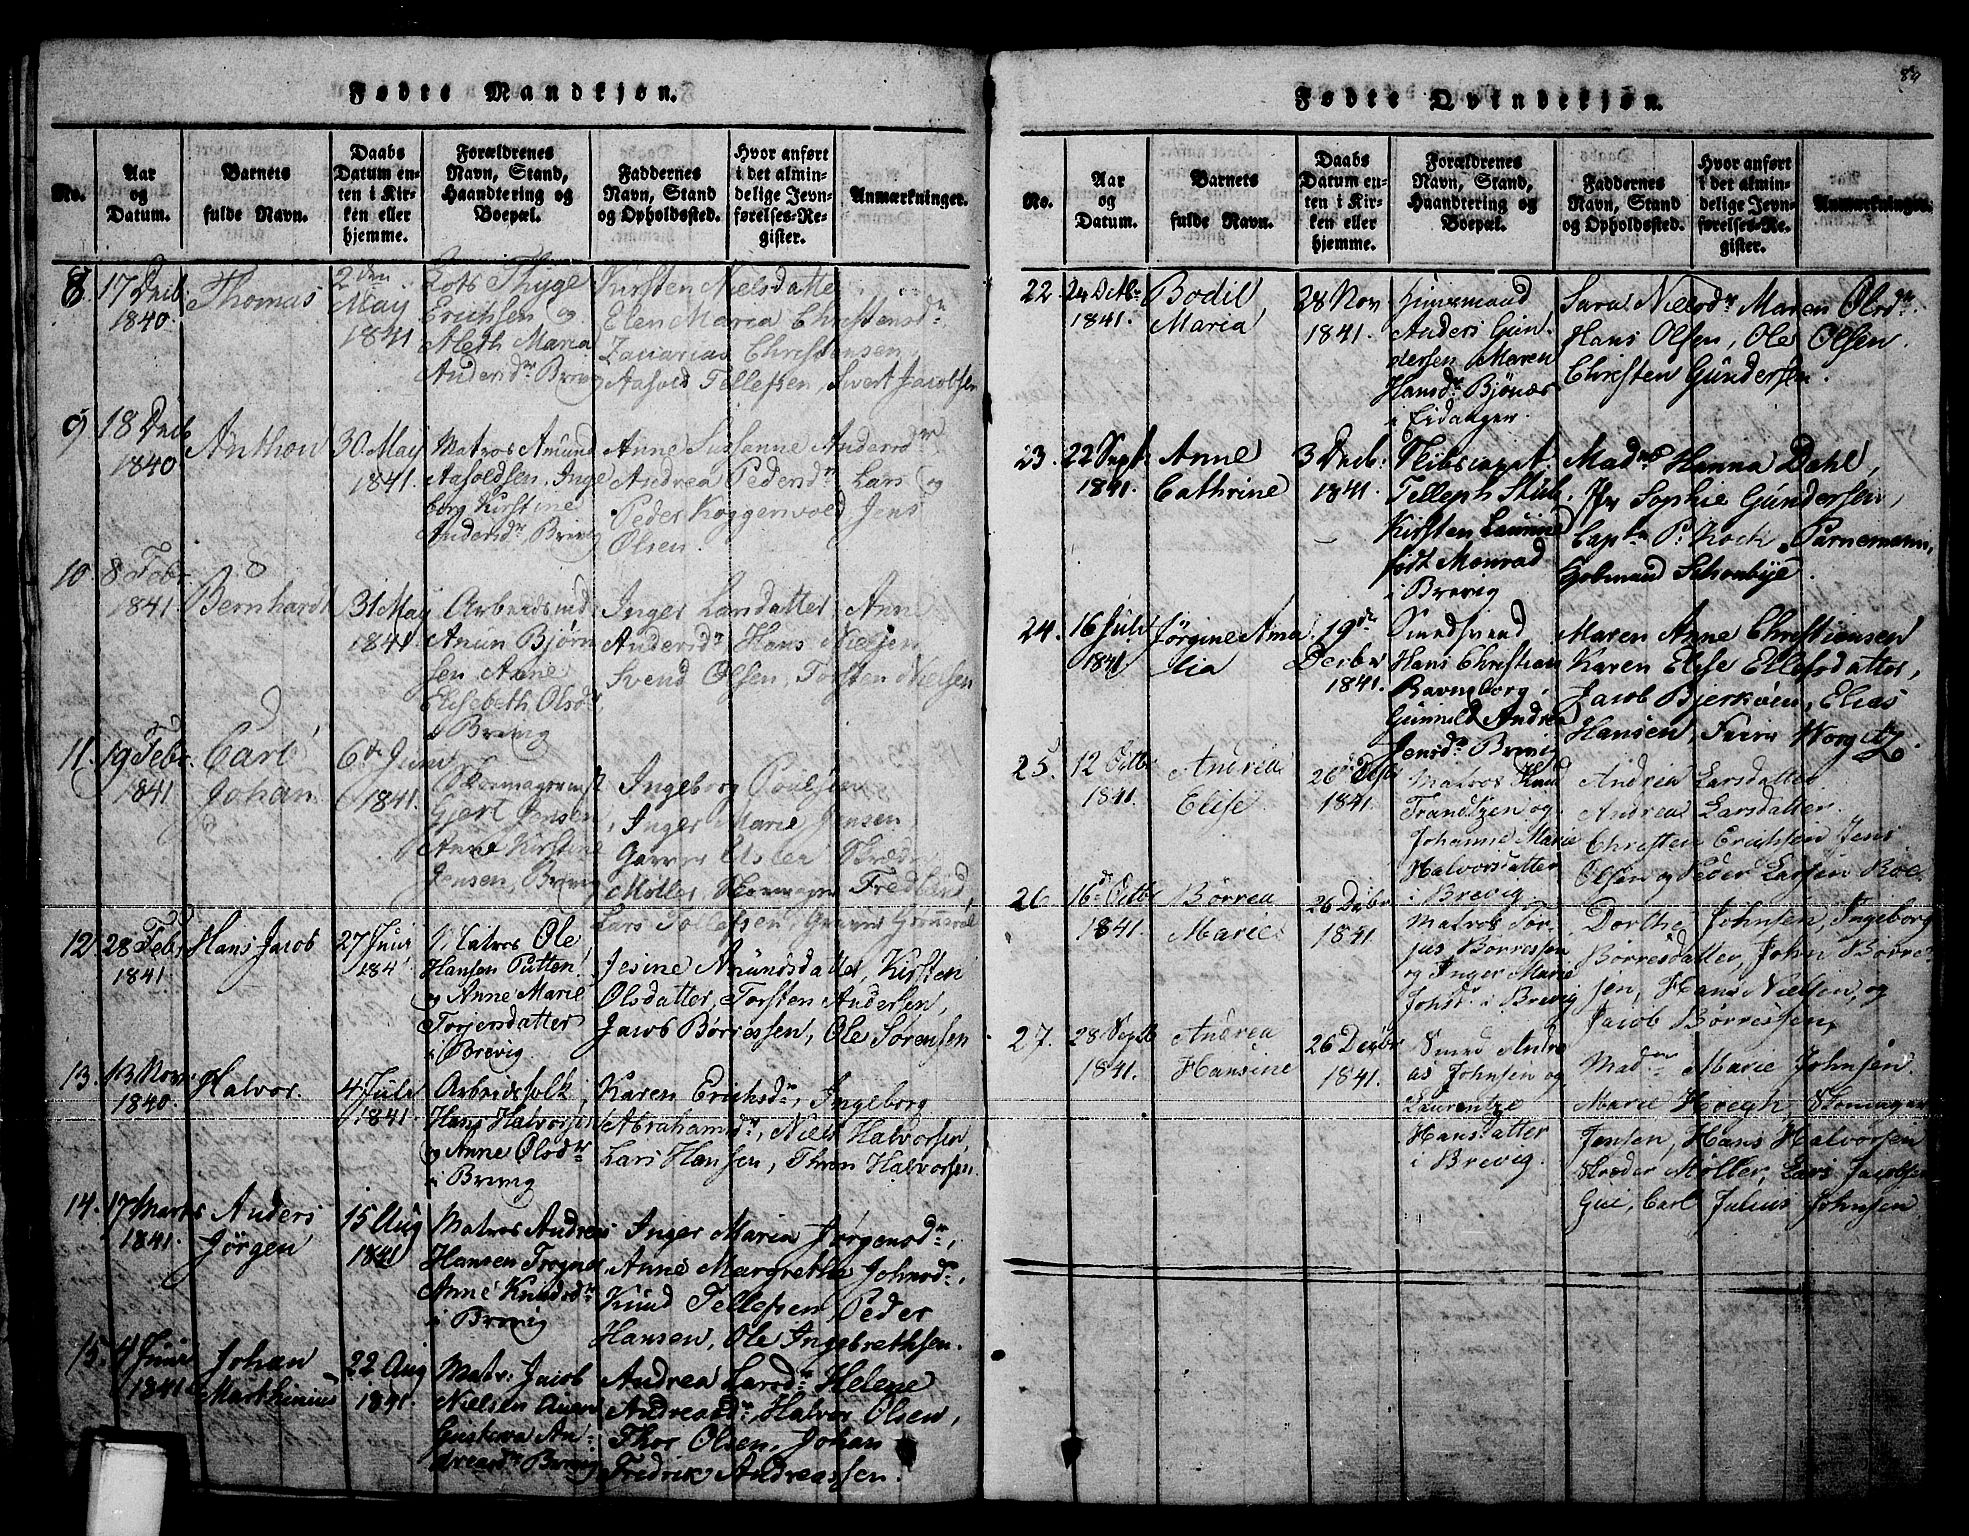 Fødte Mandkjøn.
No.
Aar
og
Datum.
Barnets
fulde Navn.
Daabs
Datum en-
ten i Kir-
ken eller
hjemme.
Forældrenes
Navn, Stand,
Haandtering og
Boepæl.
Faddernes
Navn, Stand
og Opholdssted.
Hvor anført
i det almin-
delige Jevn-
førelses-Re-
gister.
Anmærkninger.
8.
17 Decb
1840.
Thomas
2den
May
1841
Lots Thyge
Erichsen og
Aleth Maria
Andersdr Brevig
Kirsten Nielsdatter
Elen Maria Christensdr
Zacarias Christensen,
Aasold Tellefsen, Sivert Jacobsen
9
18 Decb
1840
Anthon
30 May
1841.
Matros Amund
Aasoldsen, Inge
borg Kirstine
Andersdr, Brevig
Anne Sussanne Andersdr
Andrea Pedersdr Lars og
Peder Koggenvold Jens
Olsen.
10
8 Febr
1841.
Bernhardt
31 May
1841
Arbeidsmd
Anun Bjørn
sen Anne
Elisebeth Olsdr,
i Brevig
Inger Larsdatter Anne
Andersdr, Hans Nielsen
Svend Olsen, Torsten Nielsen
11.
19 Febr.
1841
Carl
Johan
6te Juni
1841.
Skomagermst
Gjert Jensen,
Anne Kirstine
Jensen, Brevig
Ingeborg Poulsen
Inger Marie Jensen,
Garver Esler Skrædr
Møller, Skomager Fredlund,
Lars Tollefsen, Garver Grønvold
12
28 Febr
1841.
Hans Jacob
27 Juni
1841
Matros Ole
Hansen Putten
og Anne Marie
Torjersdatter
i Brevig
Jesine Amundsdatter, Kirsten
Olsdatter, Torsten Andersen,
Jacob Børresen, Ole Sørensen
13.
13 Novr
1840.
Halvor.
4 Juli
1841.
Arbeidsfolk
Hans Halvorsen
og Anne Olsdr
i Brevig
Karen Erichsdr, Ingeborg
Abrahamsdr, Niels Halvorsen,
Lars Hansen, Thron Halvorsen.
14.
17 Marts
1841.
Anders
Jørgen
15 Aug
1841
Matros Andreas
Hansen Trogner
Anne Knudsdr
i Brevig
Inger Maria Jørgensdr,
Anne Margrethe Johnsdr,
Knud Tellefsen Peder
Hansen, Ole Ingebrethsen.
15.
4 Juni
1841
Johan
Marthinius
22 Aug
1841.
Matr. Jacob
Nielsen
Gustava An-
dreasdr Brevig
Andrea Larsdr Helene
Andreasdr, Halvor Olsen,
Thor Olsen, Johan
Fredrik Andreassen.
89
Fødte Qvindekjøn.
No.
Aar
og
Datum.
Barnets
fulde Navn.
Daabs
Datum en-
ten i Kir-
ken eller
hjemme.
Forældrenes
Navn, Stand,
Haandtering og
Boepæl.
Faddernes
Navn, Stand
og Opholdssted.
Hvor anført
i det almin-
delige Jevn-
førelses-Re-
gister.
Anmærkninger.
22.
24 Octbr
1841.
Bodil
Maria
28 Nov
1841.
Huusmand
Anders Gun
dersen Maren
Hansdr Bjønæs
i Eidanger.
Sara Nielsdr Maren Olsdr.
Hans Olsen, Ole Olsen.
Christen Gundersen.
23.
22 Sept.
1841.
Anne
Cathrine
3 Decb:
1841.
Skibscapt
Telleph
Kirsten Laurine
født Monrad
i Brevig
Madme Hanna Dahl,
Jfr Sophie Gundersen,
Captn P. Kock, Parnemann,
Schonbye.
24.
16 Juli
1841.
Jørgine Ama
lia
19de
Decbr
1841.
Smedsvend
Hans Christian
Ravnsborg,
Gunnild Andrea
Jensdr Brevig
Maren Anne Christiansen
Karen Elise Ellefsdatter,
Jacob Bjerkøen, Elias
Hansen, Worgitz.
25.
12 Octbr
1841.
Andrea
Elise
26 Decbr
1841.
Matros Knud
Frandtzen og
Johanne Marie
Halvorsdatter
i Brevig
Andrea Larsdatter
Andrea Larsdatter.
Christen Erichsen, Jens
Olsen og Peder Larsen Roe.
26
16de Octbr
1841.
Børrea
Marie
26 Decbr
1841.
Matros Tor
jus Børresen
og Inger Marie
Johsdr i Brevig
Dorthe Johnsen, Ingeborg
Børresdatter, John Børre-
sen, Hans Nielsen, og
Jacob Børresen,
27.
28 Septb
1841.
Andrea
Hansine
26 Decbr
1841.
Smed Andre
as Johnsen og
Laurentze
Hansdatter
i Brevig.
Madme Marie Johnsen.
Marie Hoegh, Skomager
Jensen, Hans Halvorsen
Skræder Møller, Lars Jacobsen
Gui, Carl Julius Johnsen